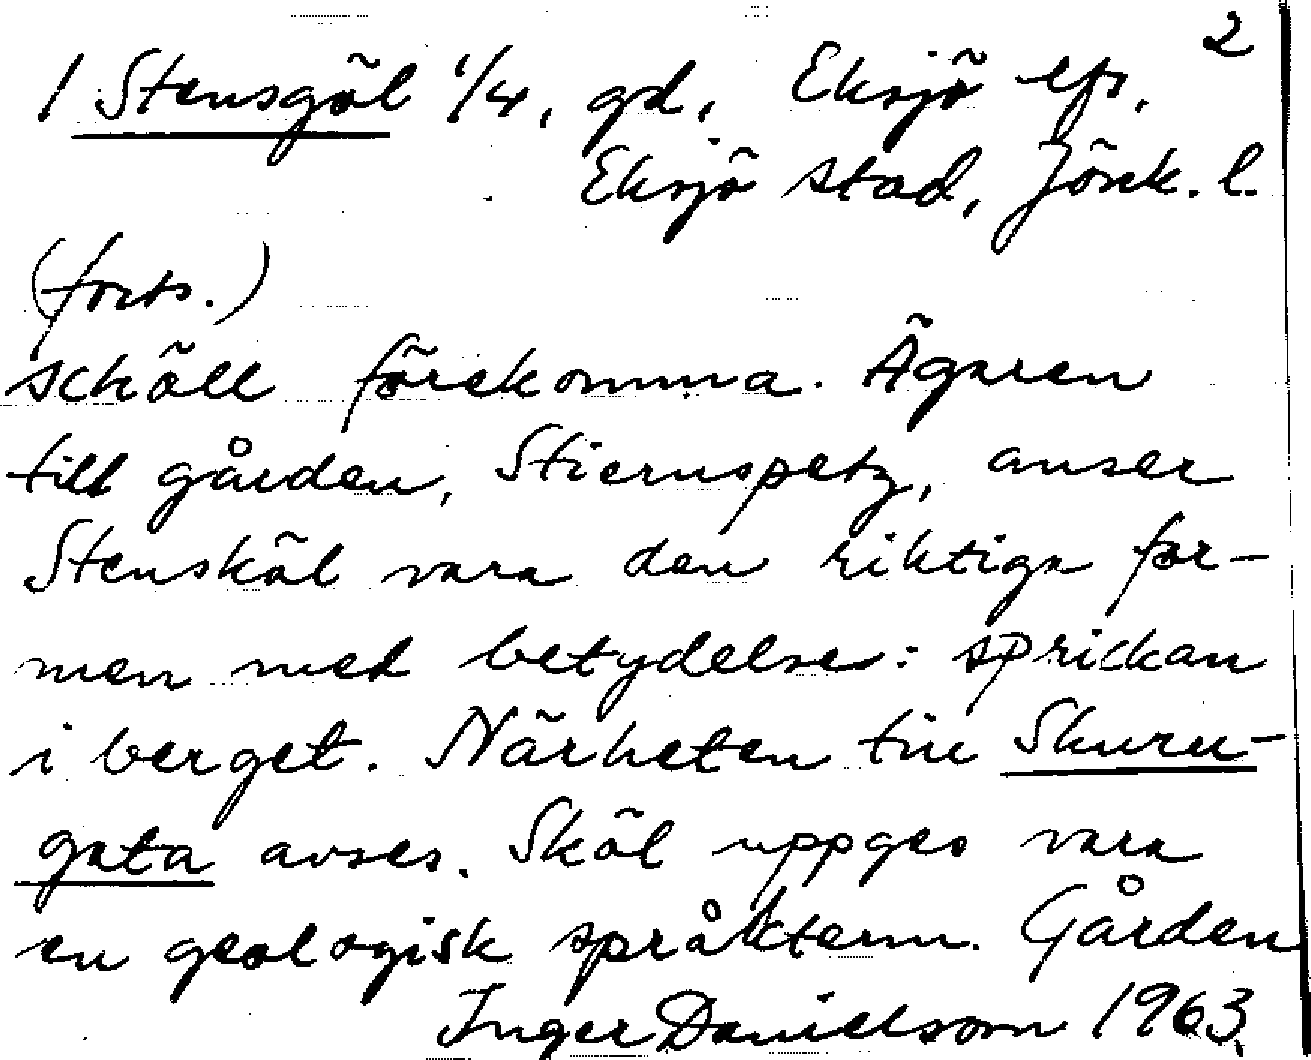 2
1 Stensgöl 1/4, gd, Eksjö lfs.
Eksjö stad, Jönk. l.
(forts.)
schöll förekomma. Ägaren
till gården, Stiernspetz, anser
Stensköl vara den riktiga for-
men med betydelse: sprickan
i berget. Närheten till Skuru-
gata avses. Sköl uppges vara
en geologisk språkterm. Gården
Inger Danielsson 1963.